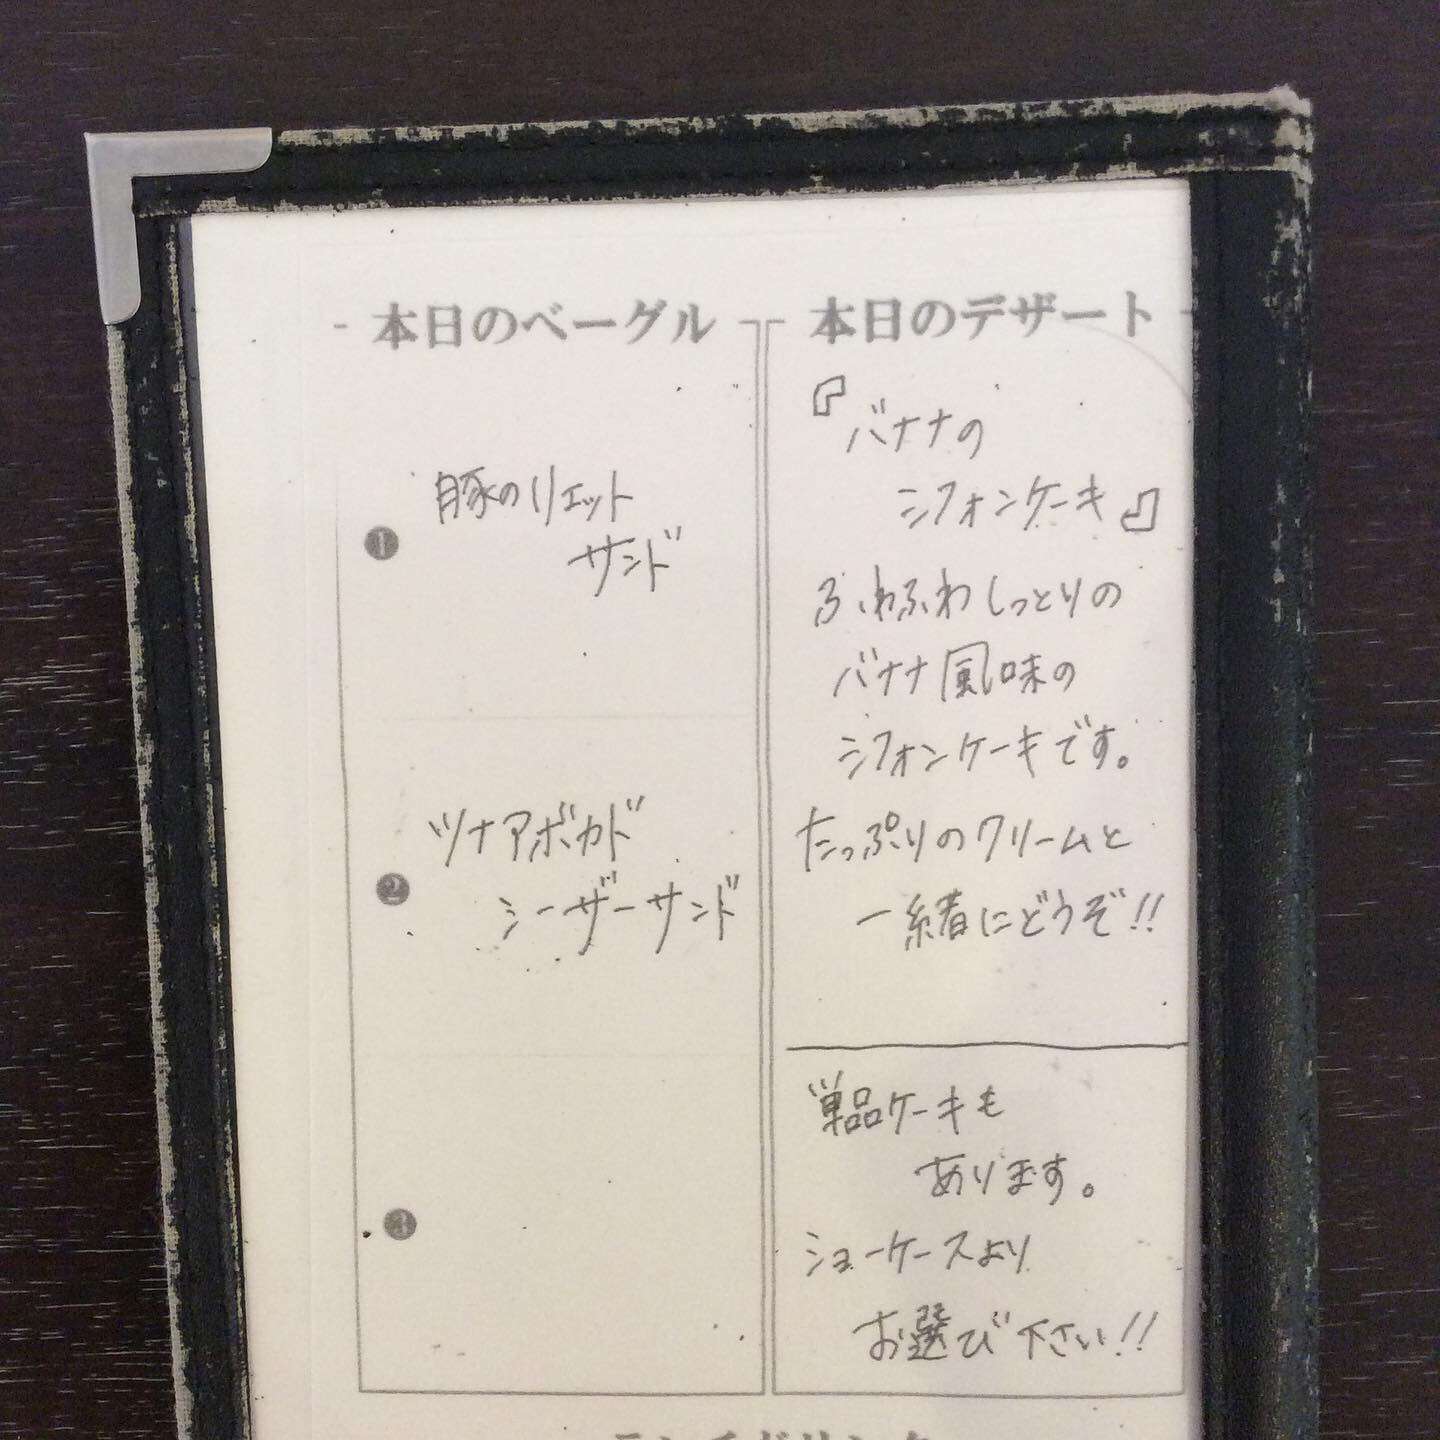 - 本日のベーグル
❶
豚のリエット
サンド
❷
ツナアボカド
シーザーサンド
❸
本日のデザート -
『バナナの
シフォンケーキ』
ふわふわしっとりの
バナナ風味の
シフォンケーキです。
たっぷりのクリームと
一緒にどうぞ!!
単品ケーキも
あります。
ショーケースより
お選び下さい!!